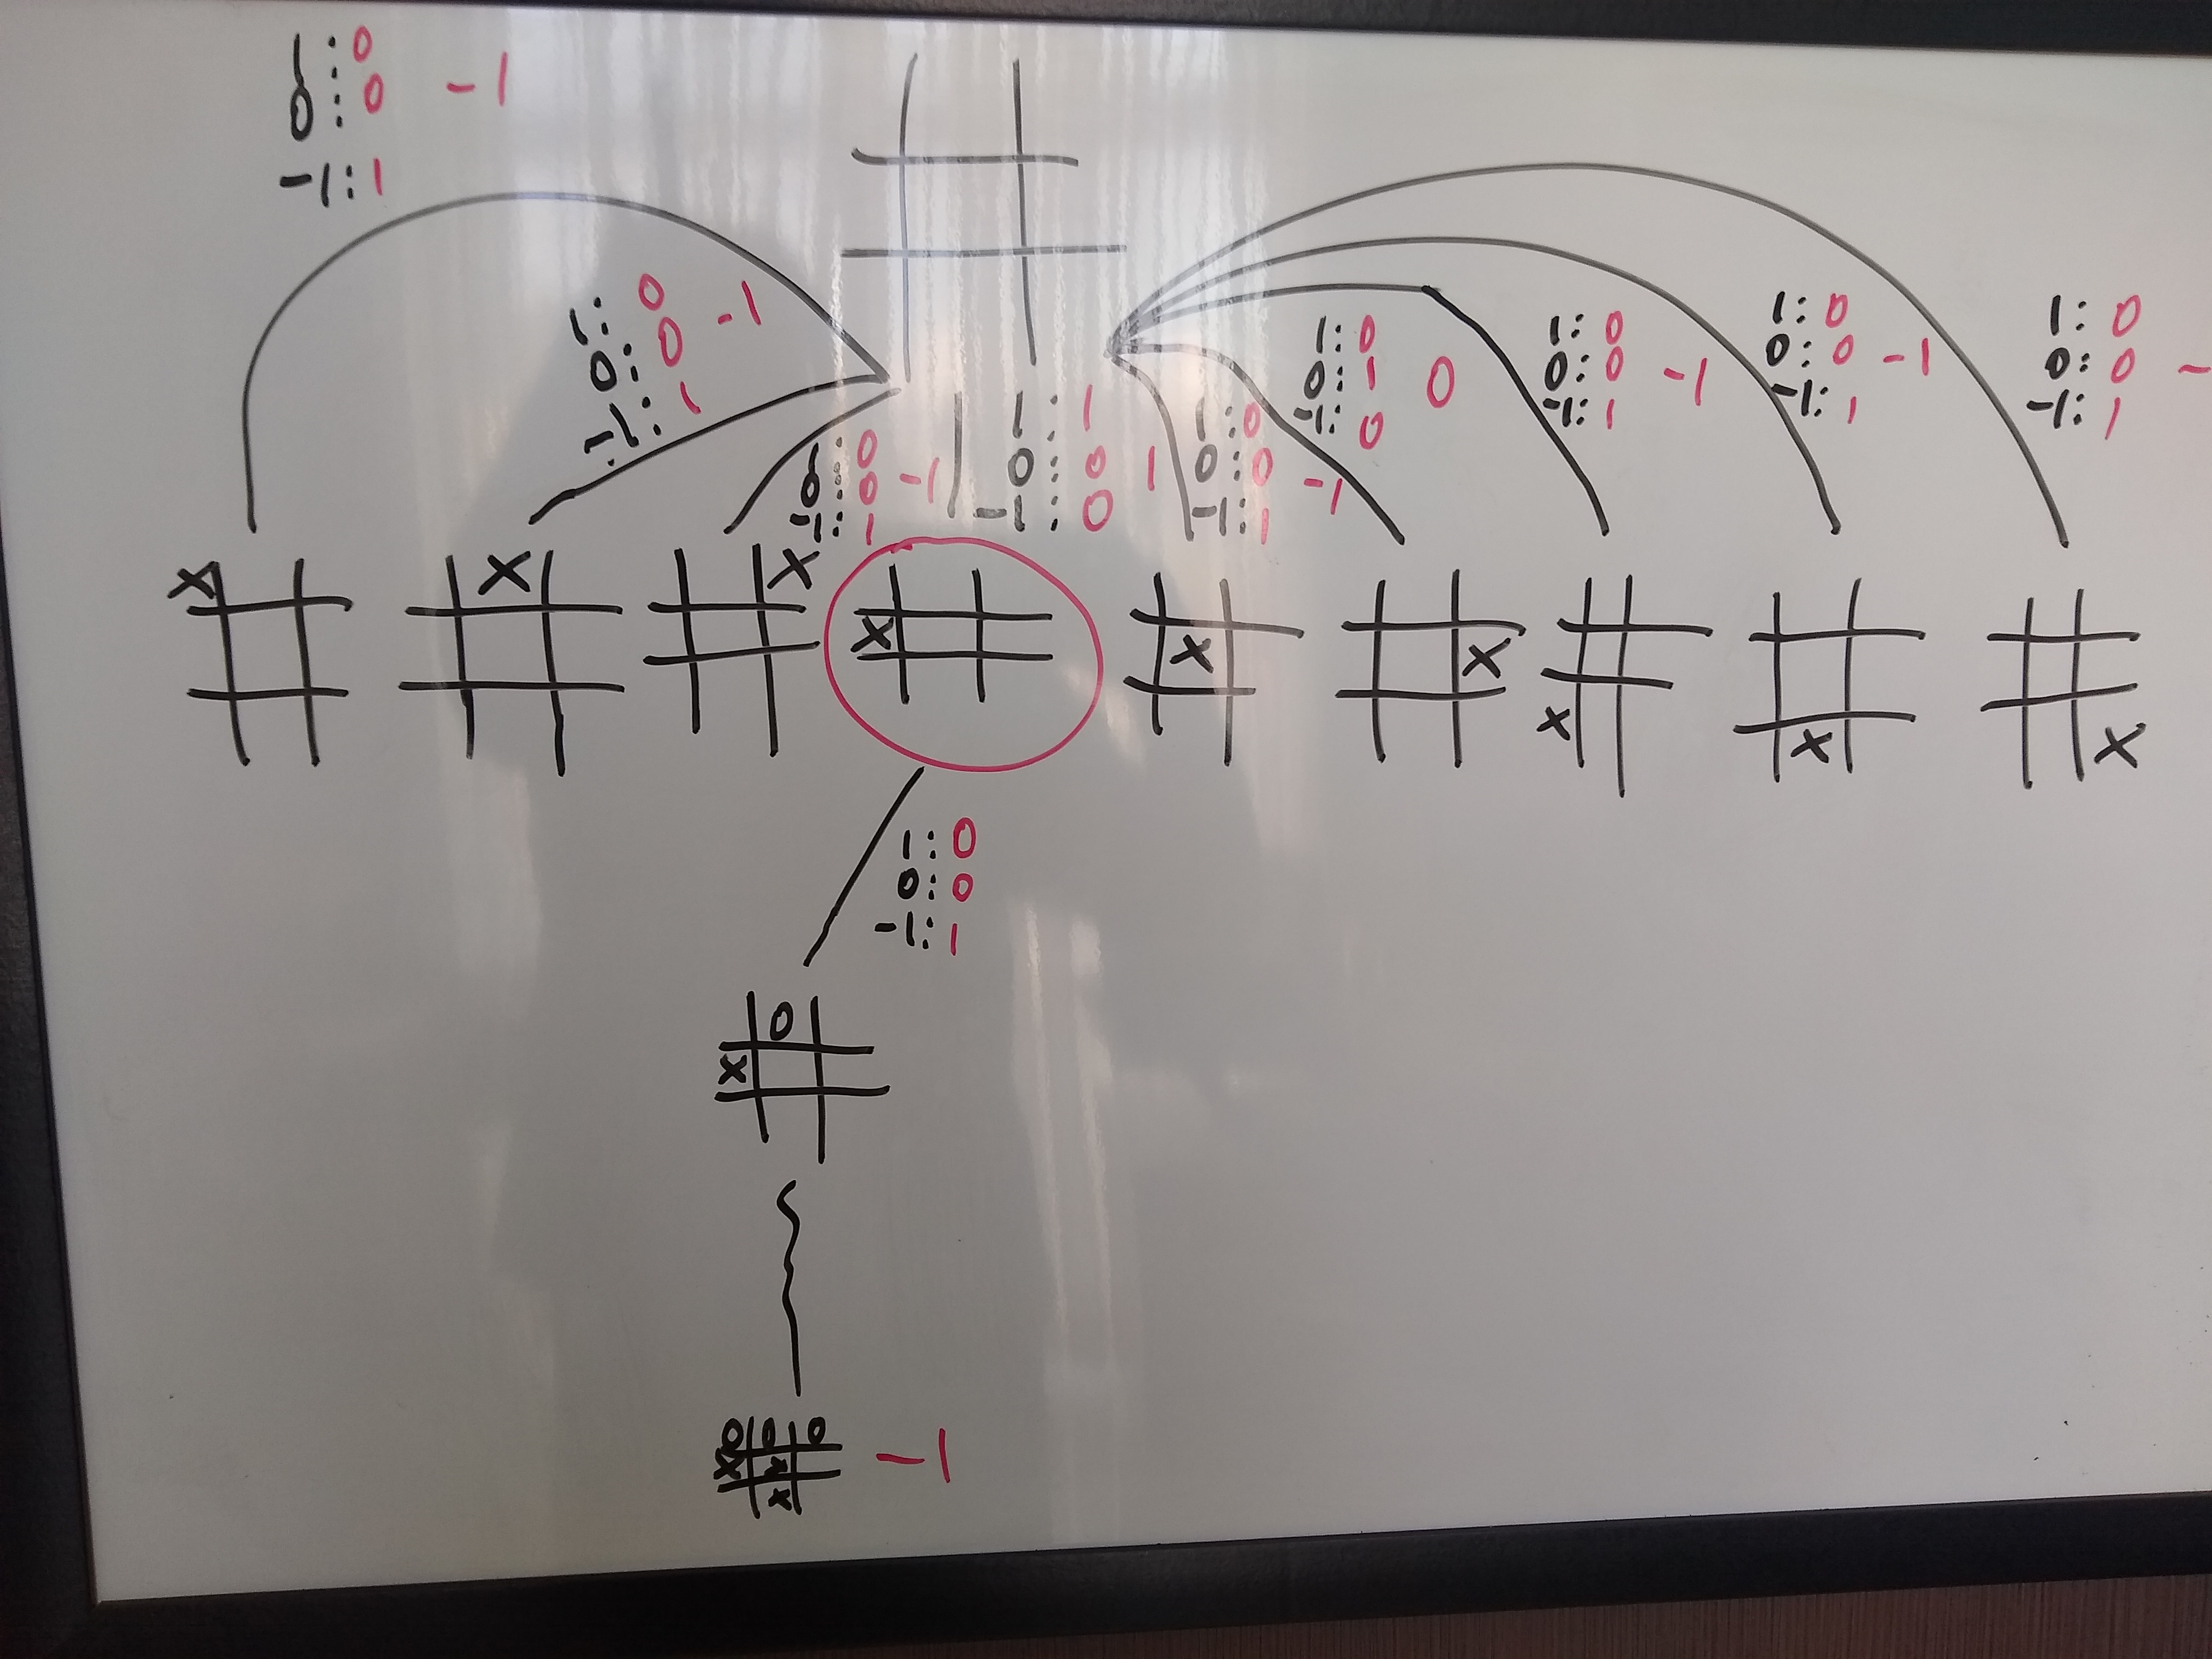 1:0
0:0 -1
-1:1
1:0
0:0 -1
-1:1
0:0 -1
-1:1
1:1
0:0 1
-1:0
1:0
0:0 -1
-1:1
1:0
0:1 0
-1:0
1:0
0:0 -1
-1:1
1:0
0:0 -1
-1:1
1:0
0:0 -
-1:1
X
X
X
X
X
X
X
X
X
1:0
0:0
-1:1
O
X
O O O
X X
X
-1